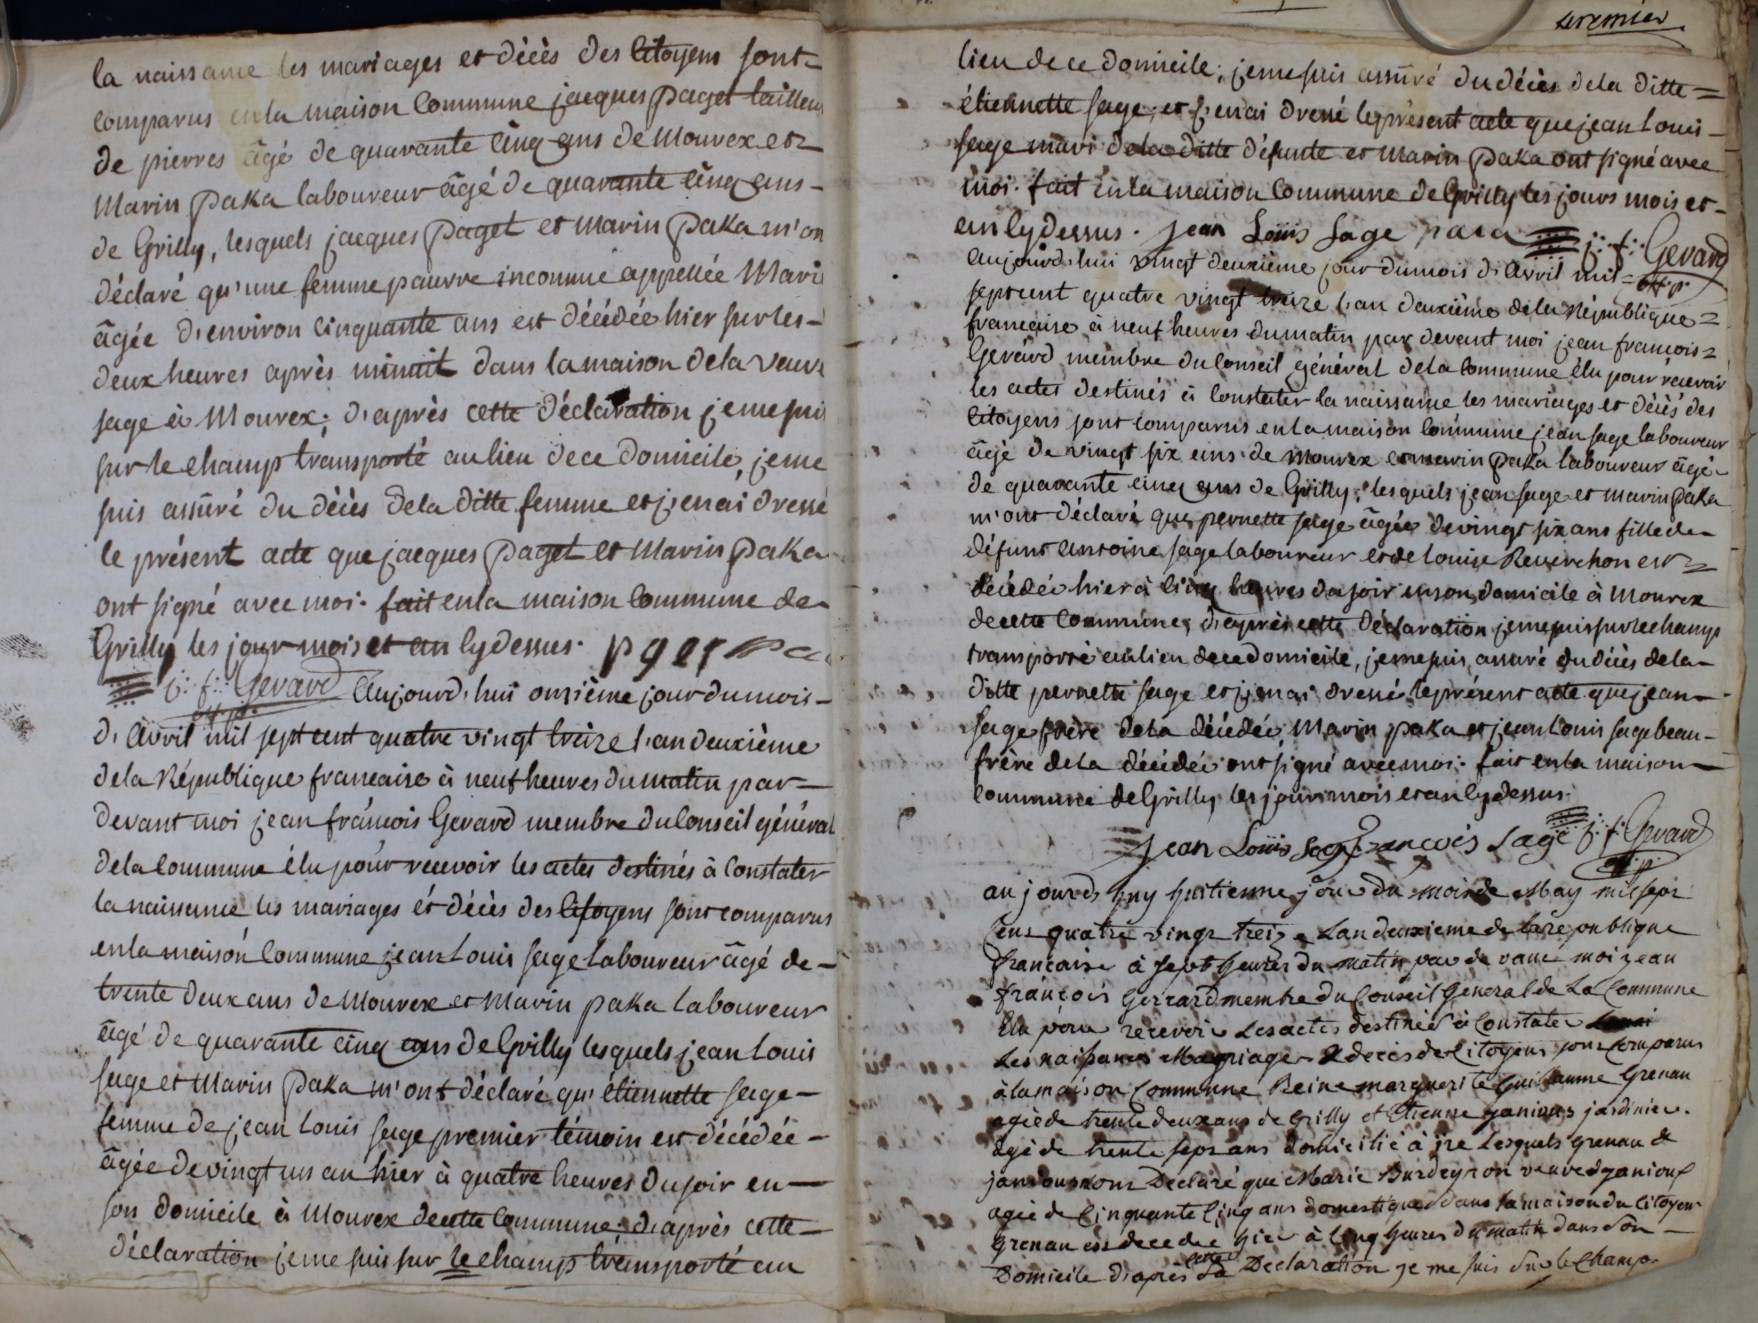 la naissance les mariages et décès des Citoyens sont=
comparus en la maison Commune jacques paget tailleur
de pierres âgé de quarante cinq ans de Mourex et=
Marin paka laboureur âgé de quarante cinq ans-
de Grilly, lesquels jacques paget et Marin paka m'on
déclaré qu'une femme pauvre inconnue appellée Mari
âgée d'environ cinquante ans est décédée hier sur les-
deux heures après minuit dans la maison de la veuve
sage à Mourex; d'après cette déclaration je me suis
sur le champ transporté au lieu de ce domicile, je me
suis assuré du décès de la ditte femme et j'en ai dressé
le présent acte que jacques paget et Marin paka
ont signé avec moi. fait en la maison Commune de
Grilly les jour mois et an cy dessus. pget pa
j: f: Gerard
off. p. Aujourd'hui onzième jour du mois-
d'Avril mil sept cent quatre vingt treize l'an deuxième
de la République francaise à neuf heures du matin par-
devant moi jean françois Gerard membre du Conseil général
de la Commune élu pour recevoir les actes destinés à Constater
la naissance les mariages et décès des Citoyens sont comparus
en la maison Commune jean Louis sage laboureur âgé de-
trente deux ans de Mourex et Marin paka laboureur
âgé de quarante cinq ans de Grilly lesquels jean Louis
sage et Marin paka m'ont déclaré qu'étiennette sage-
femme de jean Louis sage premier témoin est décédée-
âgée de vingt un an hier à quatre heures du soir en-
son domicile à Mourex de cette Commune; d'après cette-
déclaration je me suis sur le champ transporté au
premier
lieu de ce domicile; je me suis assuré du décès de la ditte=
étiennette sage; et j'en ai dressé le présent acte que jean Louis-
sage mari de la ditte défunte et Marin paka ont signé avec
moi. fait en la maison Commune de Grilly les jours mois et-
an cy dessus. jean Louis Sage paca j: f: Gerard
off. p.
Aujourd'hui vingt deuxième jour du mois d'Avril mil=
sept cent quatre vingt treize l'an deuxième de la République=
francaise à neuf heures du matin par devant moi jean françois=
Gerard membre du Conseil général de la Commune élu pour recevoir
les actes destinés à Constater la naissance les mariages et décès des
Citoyens sont comparus en la maison Commune jean sage laboureur
âgé de vingt six ans de Mourex et marin paka laboureur âgé-
de quarante cinq ans de Grilly; lesquels jean sage et marin paka
m'ont déclaré que pernette sage âgée de vingt six ans fille de-
défunt antoine sage laboureur et de Louise Reverchon est=
décédée hier à cinq heures du soir en son domicile à Mourex
de cette Commune; d'après cette Déclaration je me suis sur le champ
transporté au lieu de ce domicile, je me suis assuré du décès de la-
ditte pernette sage et j'en ai dressé le présent acte que jean-
sage frère de la décédée, Marin paka et jean Louis sage beau-
frère de la décédée ont signé avec moi. fait en la maison-
Commune de Grilly les jours mois et an cy dessus.
jean Louis Sage françois Sage j: f: Gerard
off. p.
au jourds huy huitienne jour du mois de May mil sept
Cens quatre vingt treize Lan deuxieme de la republique
francaise à sept heures du matin par de vant moi jean
françois gerrard membre du Conseil general de La Commune
Elu pour recevoir Les actes destinés à Constater
Les naissances Marriages & deces des Citoyens sont Comparus
à la maison Commune Reine marguerite Guillaume Grenau
agée de trente deux ans de Grilly et Etienne janioux jardinier
agé de trente sept ans domicilié à jre Lesquels grenau &
janioux nont Declaré que Marie Burdeyron veuve janioux
agée de Cinquante Cinq ans domestique dans la maison du Citoyen
Grenau est decedée hier à Cinq heures du matin dans son-
Domicile d'après cette Declaration je me suis sur le Champ